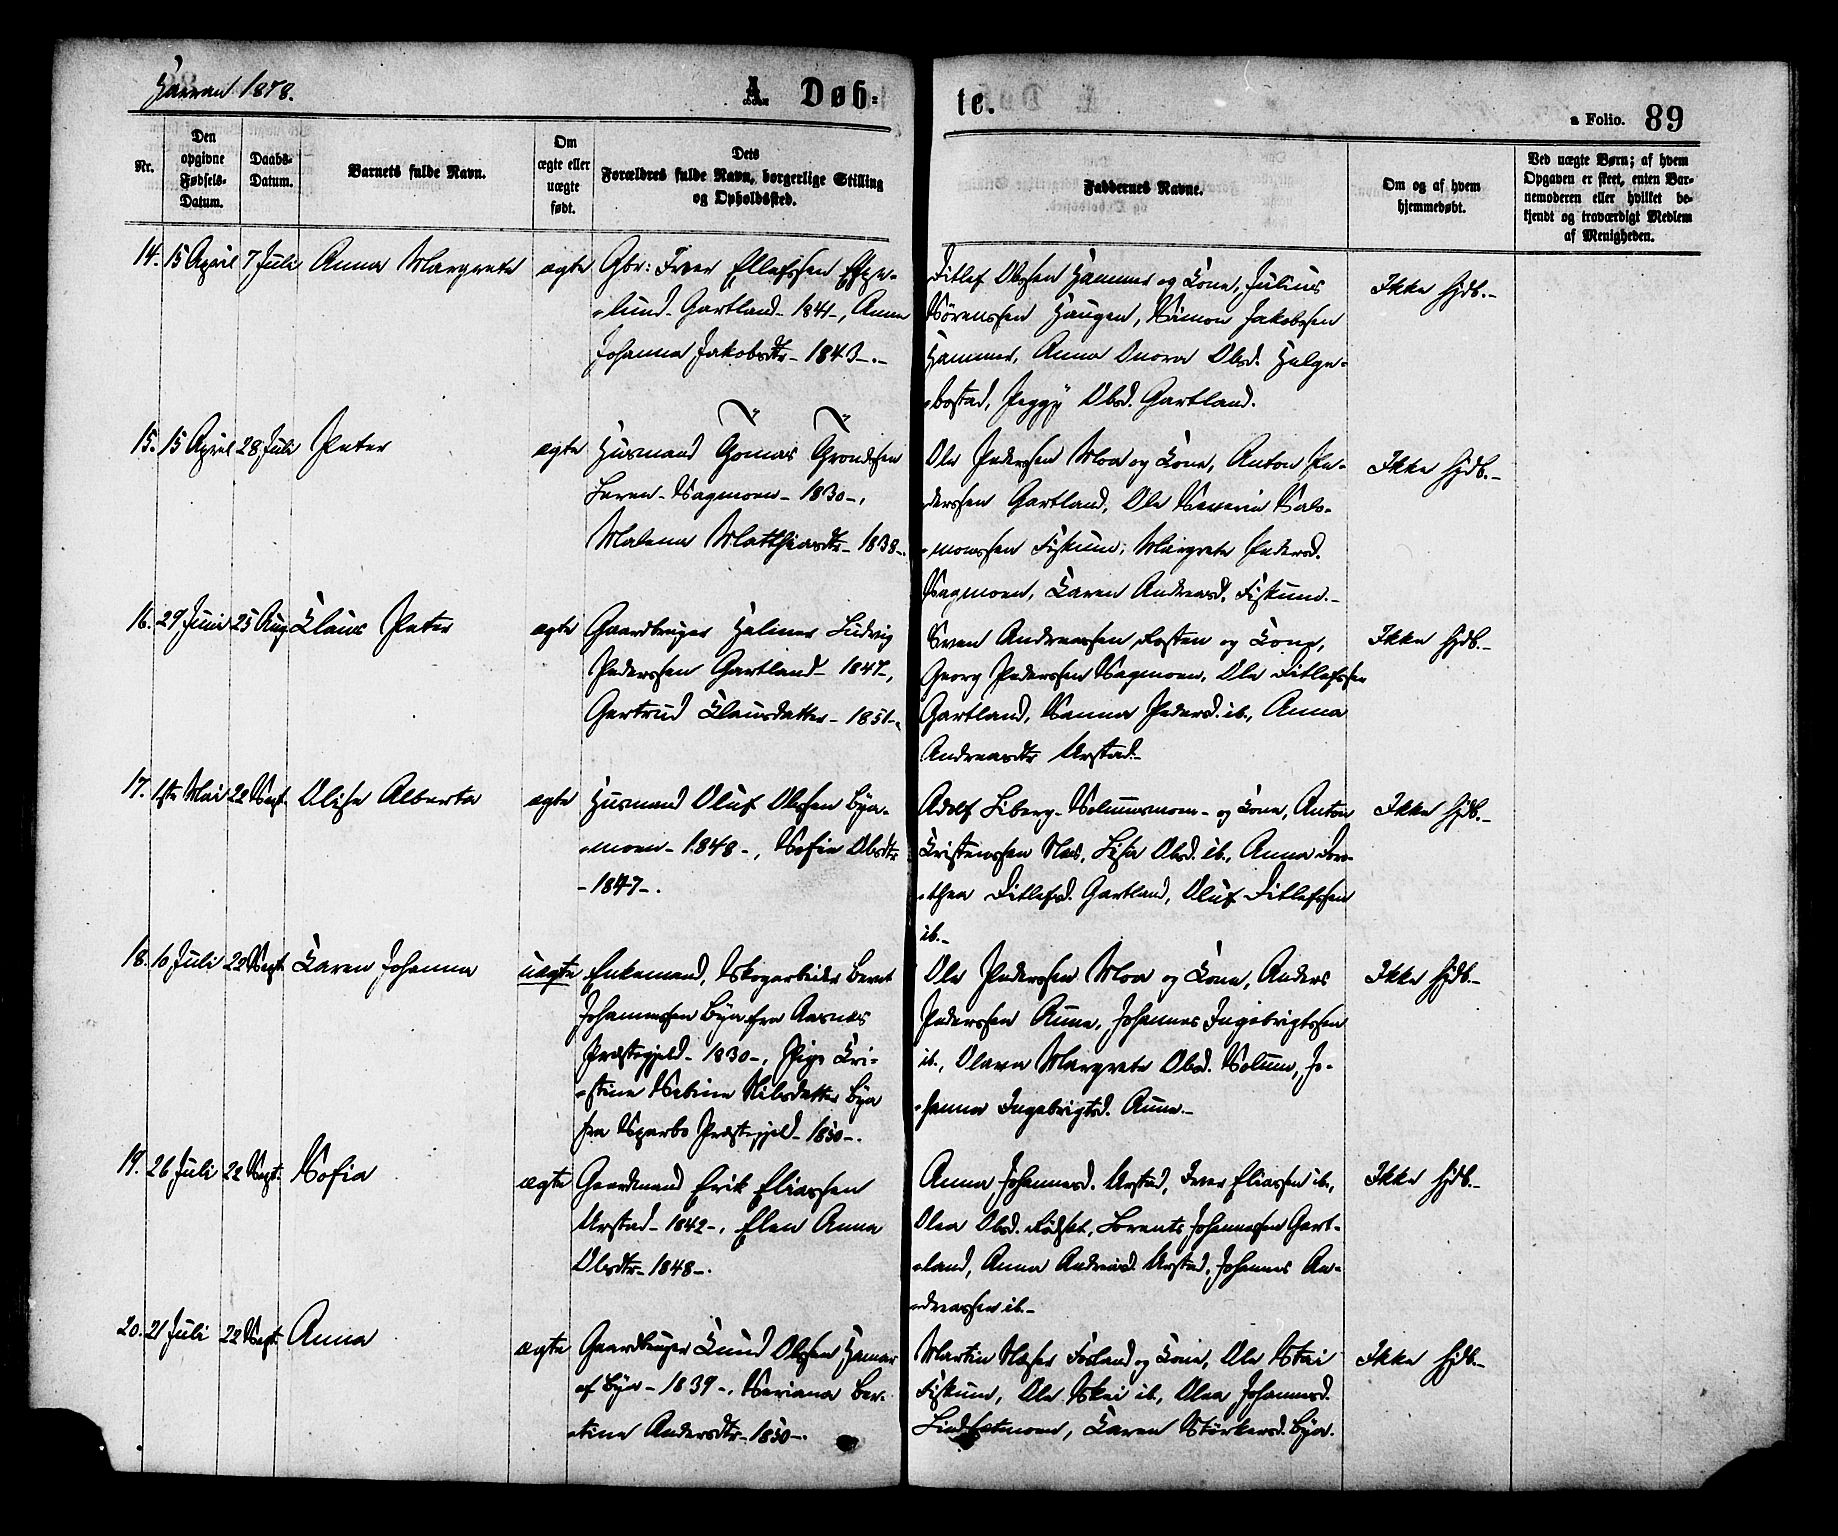 Harran 1878.
A. Døb-
te.
a Folio. 89
Nr.
Den opgivne Fødsels-Datum.
Daabs-Datum.
Barnets fulde Navn.
Om ægte eller uægte født.
Dets Forældres fulde Navn, borgerlige Stilling og Opholdssted.
Faddernes Navne.
Om og af hvem hjemmedøbt.
Ved uægte Børn; af hvem Opgaven er skeet, enten Barnemoderen eller hvilket bekjendt og troværdigt Medlem af Menigheden.
14. 15 April 7 Juli Anna Margrete ægte Gbr: Iver Ellefssen Espe-
lund - Gartland - 1841 -, Anne
Johanna Jakobsdtr - 1843 -.-
Ditlef Olssen Hammer og Kone, Julius
Sørenssen Haugen, Simon Jakobssen
Hammer, Anna Onora Olsd. Helge-
bostad, Peggy Olsd. Gartland.
Ikke hjdb.-
15. 15 April 28 Juli Peter ægte Husmand Tomas Grondssen
Leren - Sagmoen - 1830 -,
Malena Matthiasdtr - 1838 -.
Ole Pederssen Moa og Kone, Anton Pe-
derssen Gartland, Ole Severin Salo-
monssen Fiskum, Margrete Pedersd.
Sagmoen, Karen Andreasd. Fiskum.-
Ikke hjdb.-
16. 29 Juni 25 Aug. Klaus Peter ægte Gaardbruger Halmer Ludvig
Pederssen Gartland - 1847 -,
Gertrud Klausdatter - 1851 -.
Sven Andreassen Rosten og Kone,
Georg Pederssen Sagmoen, Ole Ditlefssen
Gartland, Sanna Pedersd. ib., Anna
Andreasdtr Urstad.-
Ikke hjdb.-
17. 1ste Mai 22 Sept. Olise Alberta ægte Husmand Oluf Olssen Bya-
moen - 1848 -, Sofie Olsdtr
- 1847 -.
Adolf Liberg - Solumsmoen - og Kone, Anton
Kristenssen Næs, Lisa Olsd. ib., Anna Doro-
thea Ditlefsd. Gartland, Oluf Ditlefssen
ib.-
Ikke hjdb.-
18. 10 Juli 22 Sept. Karen Johanna uægte Enkemand, Skogarbeider Bernt
Johannessen Bya fra Aasnes
Præstegjeld - 1830 -, Pige Kri-
stine Sabine Nilsdatter Bya
fra Sparbo Præstegjeld - 1850 -.
Ole Pederssen Moa og Kone, Anders
Pederssen Aune, Johannes Ingebrigtssen
ib., Olava Margrete Olsd. Solum, Jo-
hanna Ingebrigtsd. Aune.-
Ikke hjdb.-
19. 26 Juli 22 Sept. Sofia ægte Gaardmand Erik Eliassen
Urstad - 1842 -, Elen Anna
Olsdtr - 1848 -.
Anna Johannesd. Urstad, Iver Eliassen ib.,
Olea Olsd. Rødset, Lorents Johannessen Gart-
land, Anna Andreasd. Urstad, Johannes An-
dreassen ib.-
Ikke hjdb.-
20. 21 Juli 22 Sept. Anna ægte Gaardbruger Knud Olssen Hamar
af Bya - 1839 -, Seriana Ber-
tine Andersdtr - 1850 -.
Martin Forland og Kone, Ole Skei
Fiskum, Ole Skei ib., Olea Johannesd.
Lindsetmoen, Karen Størkersd. Bya.
Ikke hjdb.-